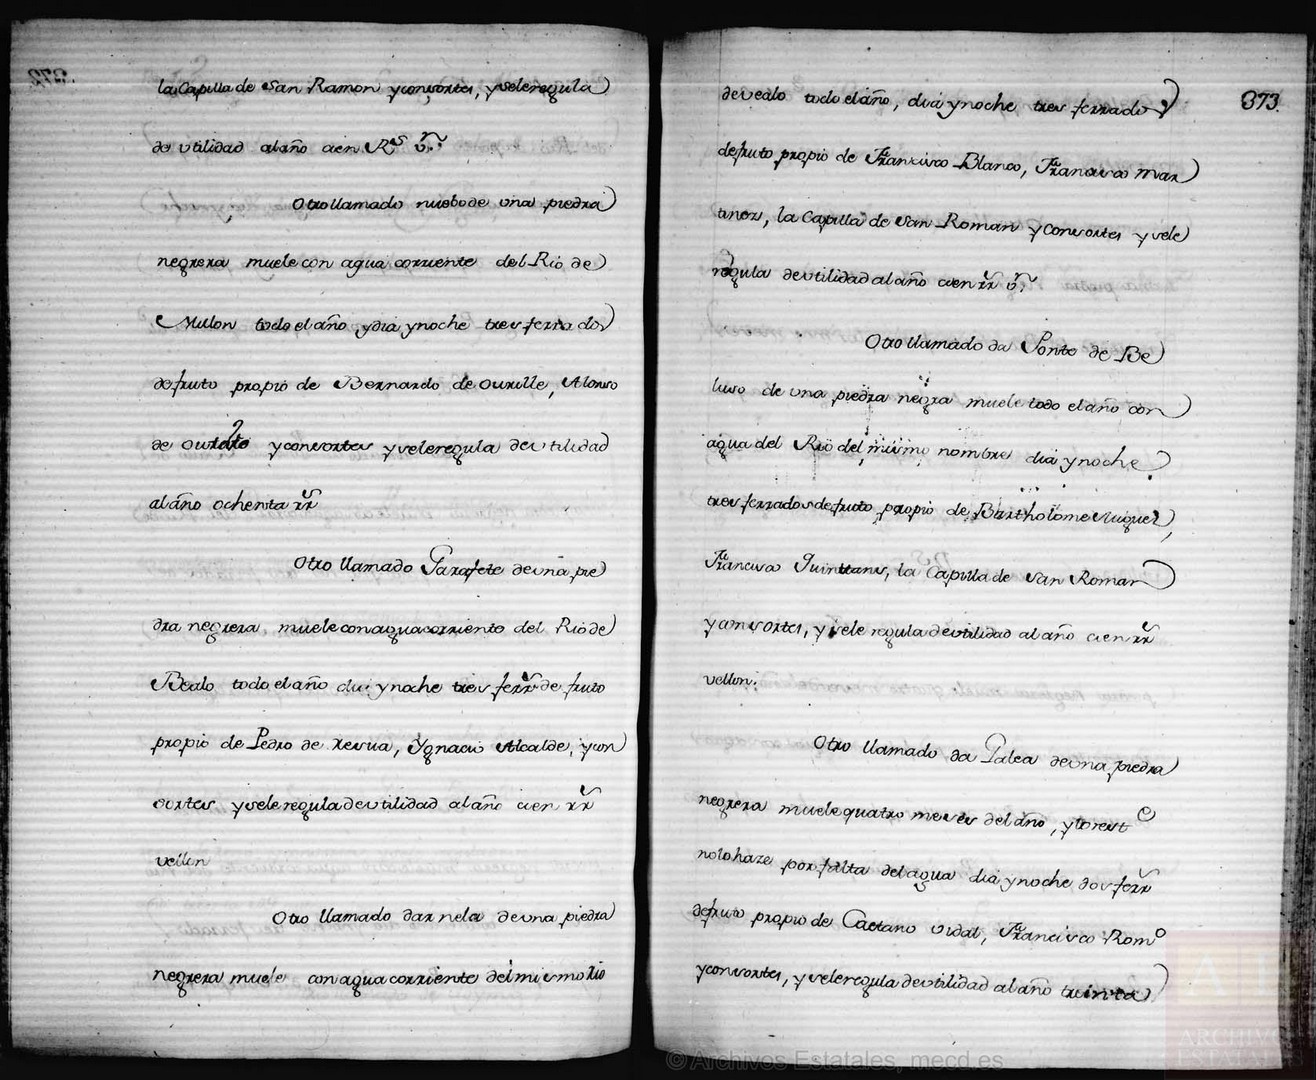 la Capilla de San Ramon y consortes, y sele regula
de utilidad al año cien R.s v.n:
Otro llamado nuebo de una piedra
negrera muele con agua corriente del Rio de
Mulon todo el año y dia y noche tres ferrados
de fruto propio de Bernardo de Ourille, Alonso
de y consortes y sele regula de utilidad
al año ochenta rr.s
Otro llamado Garafete de una pie
dra negrera muele con agua corriente del Rio de
Bealo todo el año dia y noche tres ferr.s de fruto
propio de Pedro de resua, Ygnacio Alcalde, y con
sortes y sele regula de utilidad al año cien rr.s
vellon
Otro llamado dar nela de una piedra
negrera muele con agua corriente del mismo rio
373.
de vealo todo el año, dia y noche tres ferrados
de fruto propio de Fran.cisco Blanco, Francisco mar
tinez, la Capilla de San Roman y consortes y sele
regula de utilidad al año cien rr.s v.n:
Otro llamado da Ponte de Be
luso de una piedra negra muele todo el año con
agua del Rio del mismo nombre dia y noche
tres ferrados de fruto propio de Bartholome Miguez,
Francisca Quintans, la Capilla de San Roman
y consortes, y sele regula de utilidad al año cien rr.s
vellon:
Otro llamado da Galea de una piedra
negrera muele quatro meses del año, y lo rest.e
no lo haze por falta del agua dia y noche dos ferr.s
de fruto propio de Caetano vidal, Francisco Rom.o
y consortes, y sele regula de utilidad al año treinta
© Archivos Estatales, mecd.es
ARCHIVOS
ESTATALES